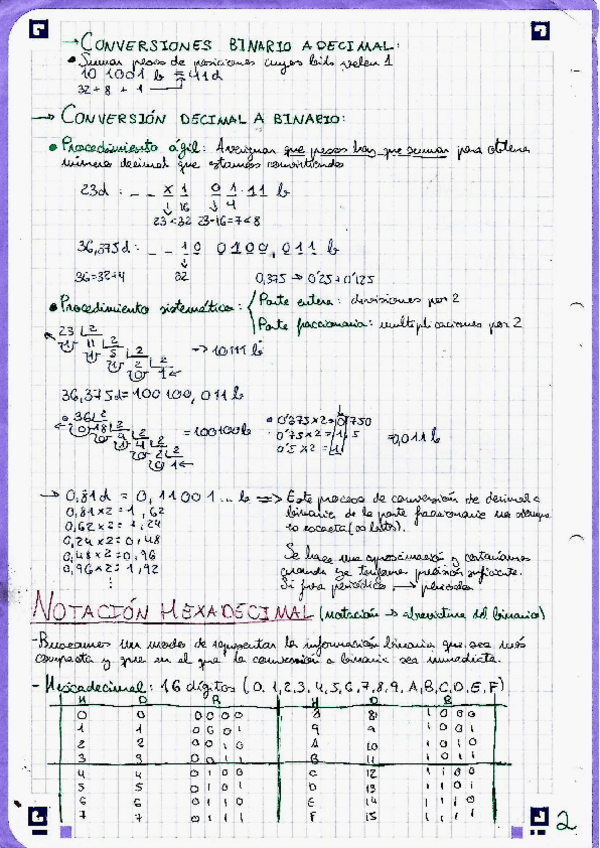 → CONVERSIONES BINARIO A DECIMAL:
• Sumar pesos de posiciones cuyos bits valen 1
101001 b = 41d
32 + 8 + 1
→ CONVERSIÓN DECIMAL A BINARIO:
• Procedimiento ágil: Averiguar que pesos hay que sumar para obtener
número decimal que estamos convirtiendo
23d : _ _ x 1 0 1 1 1 b
↓ 16 ↓ 4
23<32 23-16=7<8
36,375d : _ _ 1 0 0 1 0 0, 0 1 1 b
36=32+4 32 0,375 → 0'25+0'125
• Procedimiento sistemático: Parte entera: divisiones por 2
Parte fraccionaria: multiplicaciones por 2
23 |2
1 11 |2
1 5 |2
1 2 |2
0 1
→ 10111 b
36,375d = 100100,011 b
• 36 |2
0 18 |2
0 9 |2
1 4 |2
0 2 |2
0 1
= 100100b
• 0'375x2=0,750
0'75x2=1,5
0'5x2=1
=0,011b
→ 0,81d = 0,11001... b ⇒ Este proceso de conversión de decimal a
0,81x2=1,62 binario de la parte fraccionaria
0,62x2=1,24
0,24x2=0,48
0,48x2=0,96 Se hace una aproximación y
0,96x2=1,92 cuando ya tengamos precisión suficiente.
⋮ Si fuera periódico → periodo
NOTACIÓN HEXADECIMAL (notación → abreviatura del binario)
-Buscamos un modo de representar la información binaria que sea más
compacta y en el que la conversión a binario sea inmediata.
- Hexadecimal: 16 dígitos (0,1,2,3,4,5,6,7,8,9,A,B,C,D,E,F)
H D B H D B
0 0 0000 8 8 1000
1 1 0001 9 9 1001
2 2 0010 A 10 1010
3 3 0011 B 11 1011
4 4 0100 C 12 1100
5 5 0101 D 13 1101
6 6 0110 E 14 1110
7 7 0111 F 15 1111
2